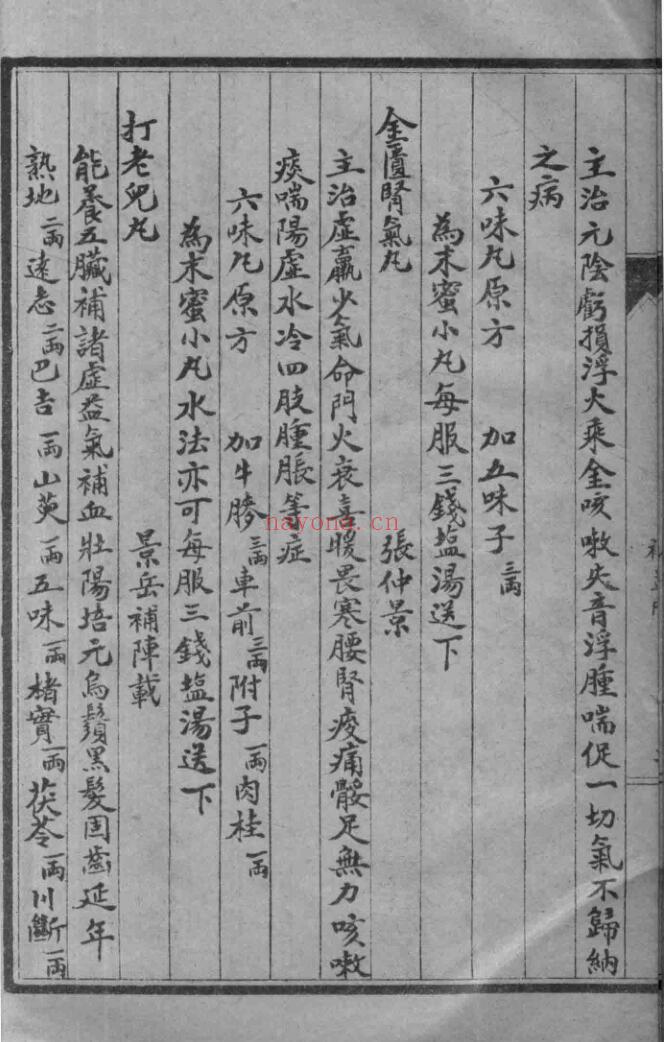 主治元陰虧損浮火乘金咳嗽失音浮腫喘促一切氣不歸納
之病
六味丸原方　加五味子三兩
為末蜜小丸每服三錢塩湯送下
金匱腎氣丸　張仲景
主治虛羸少氣命門火衰喜暖畏寒腰腎痠痛骽足無力咳嗽
痰喘陽虛水冷四肢腫脹等症
六味丸原方　加牛膝三兩車前三兩附子一兩肉桂一兩
為末蜜小丸水法亦可每服三錢塩湯送下
打老兒丸　景岳補陣載
能養五臟補諸虛益氣補血壯陽培元烏鬚黑髮固齒延年
熟地二兩遠志二兩巴吉一兩山萸一兩五味一兩楮實一兩茯苓一兩川斷一兩
hayong.cn